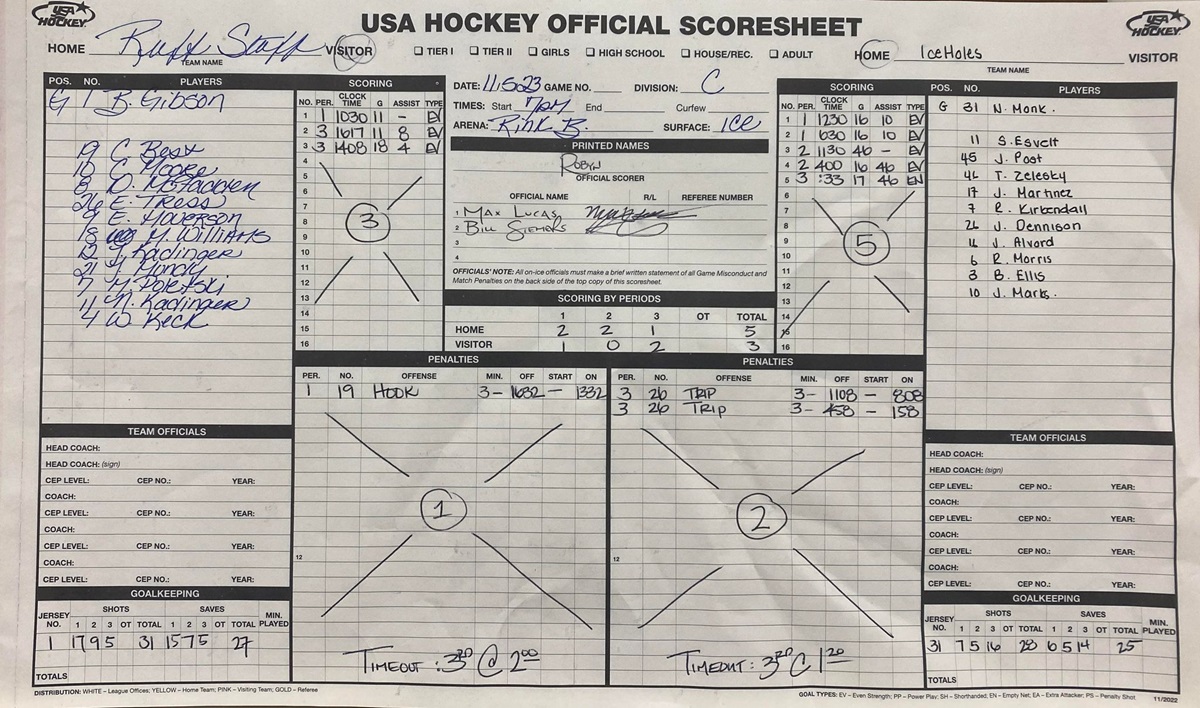 USA HOCKEY
USA HOCKEY OFFICIAL SCORESHEET
USA HOCKEY
HOME Ruff Staff VISITOR ☐ TIER I ☐ TIER II ☐ GIRLS ☐ HIGH SCHOOL ☐ HOUSE/REC. ☐ ADULT HOME IceHoles VISITOR
TEAM NAME TEAM NAME
POS. NO. PLAYERS
G 1 B. Gibson
19 C Best
10 C Moore
8 D. McFadden
26 E. Tress
9 E. Hoverson
18 M. Williams
12 J. Kadinger
21 J. Mundy
7 M. Poletski
11 N. Kadinger
4 W. Keck
SCORING
NO. PER. CLOCK TIME G ASSIST TYPE
1 1 1030 11 - EV
2 3 1617 11 8 EV
3 3 1408 18 4 EV
4
5
6
7
8
9
10
11
12
13
14
15
16
3
DATE: 11.5.23 GAME NO. DIVISION: C
TIMES: Start 7pm End Curfew
ARENA: Rink B. SURFACE: ICE
PRINTED NAMES
Robyn
OFFICIAL SCORER
OFFICIAL NAME R/L REFEREE NUMBER
1 Max Lucas
2 Bill Siemers
3
4
OFFICIALS' NOTE: All on-ice officials must make a brief written statement of all Game Misconduct and
Match Penalties on the back side of the top copy of this scoresheet.
SCORING BY PERIODS
1 2 3 OT TOTAL
HOME 2 2 1 5
VISITOR 1 0 2 3
SCORING
NO. PER. CLOCK TIME G ASSIST TYPE
1 1 1230 16 10 EV
2 1 630 16 10 EV
3 2 1130 46 - EV
4 2 400 16 46 EV
5 3 :33 17 46 EN
6
7
8
9
10
11
12
13
14
15
16
5
POS. NO. PLAYERS
G 31 N. Monk.
11 S. Esvelt
45 J. Post
46 T. Zelesky
17 J. Martinez
7 R. Kirkendall
26 J. Dennison
16 J. Alvord
6 R. Morris
3 B. Ellis
10 J. Marks.
PENALTIES
PER. NO. OFFENSE MIN. OFF START ON
1 19 HOOK 3- 1632 - 1332
12
1
TIMEOUT: 3RD @ 2:00
PENALTIES
PER. NO. OFFENSE MIN. OFF START ON
3 26 TRIP 3- 1108 - 808
3 26 TRIP 3- 458 - 158
12
2
TIMEOUT: 3RD @ 1:20
TEAM OFFICIALS
HEAD COACH:
HEAD COACH: (sign)
CEP LEVEL: CEP NO.: YEAR:
COACH:
CEP LEVEL: CEP NO.: YEAR:
COACH:
CEP LEVEL: CEP NO.: YEAR:
COACH:
CEP LEVEL: CEP NO.: YEAR:
GOALKEEPING
JERSEY NO. SHOTS 1 2 3 OT TOTAL SAVES 1 2 3 OT TOTAL MIN. PLAYED
1 17 9 5 31 15 7 5 27
TOTALS
TEAM OFFICIALS
HEAD COACH:
HEAD COACH: (sign)
CEP LEVEL: CEP NO.: YEAR:
COACH:
CEP LEVEL: CEP NO.: YEAR:
COACH:
CEP LEVEL: CEP NO.: YEAR:
COACH:
CEP LEVEL: CEP NO.: YEAR:
GOALKEEPING
JERSEY NO. SHOTS 1 2 3 OT TOTAL SAVES 1 2 3 OT TOTAL MIN. PLAYED
31 7 5 16 28 6 5 14 25
TOTALS
DISTRIBUTION: WHITE – League Offices; YELLOW – Home Team; PINK – Visiting Team; GOLD – Referee
GOAL TYPES: EV – Even Strength; PP – Power Play; SH – Shorthanded; EN – Empty Net; EA – Extra Attacker; PS – Penalty Shot. 11/2022